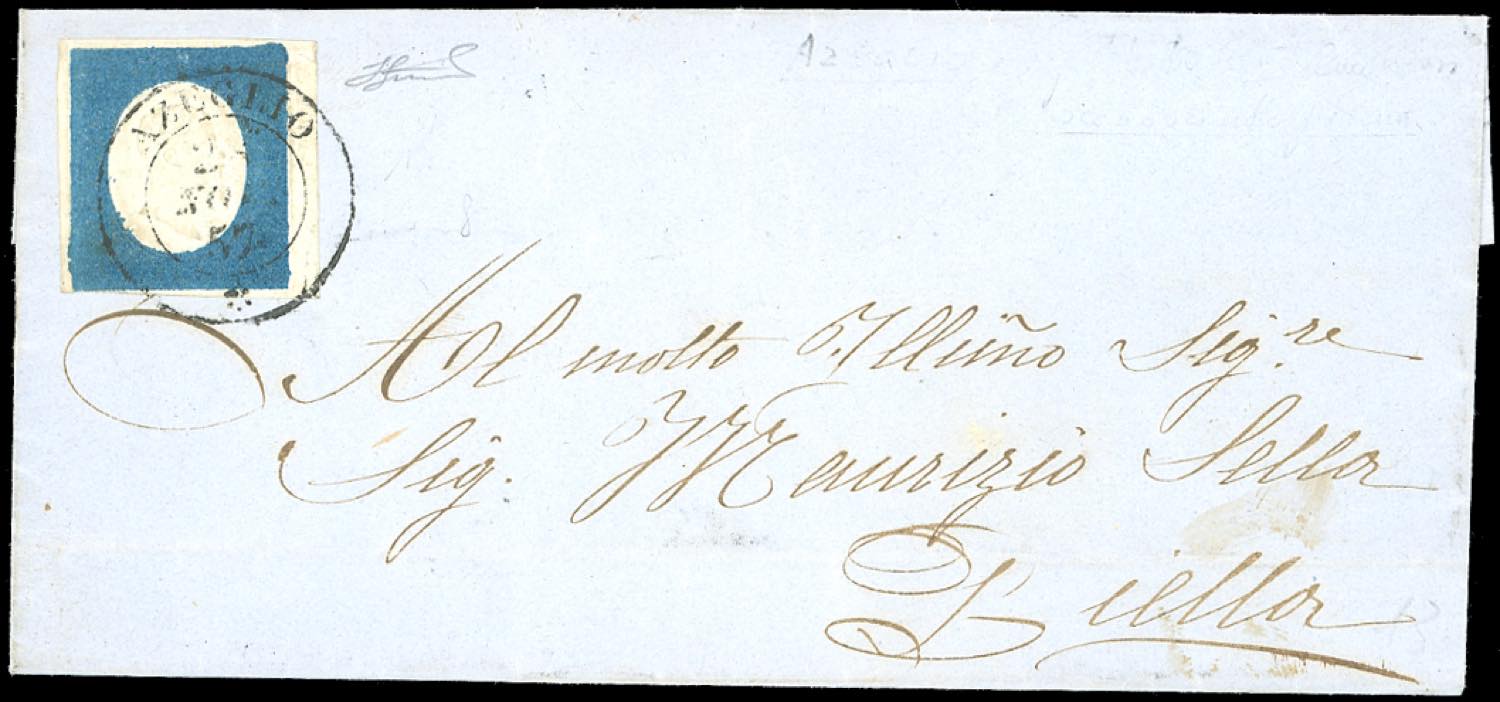 AZEGLIO
Al molto Illmo Sig.re
Sig. Maurizio Sella
Biella